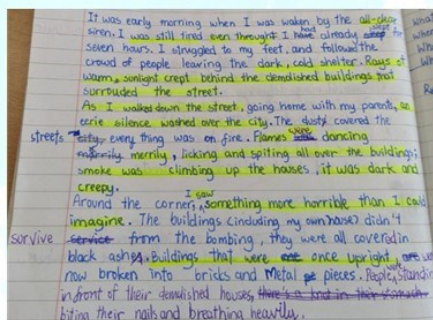 It was early morning when I was waken by the all-clear
siren. I was still tired even throught I had already
seven hours. I struggled to my feet, and followed the
crowd of people leaving the dark, cold shelter. Rays of
warm, sunlight crept behind the demolished buildings that
surrouded the street.
As I walked down the street, going home with my parents, an
eerie silence, washed over the city. The dusty covered the
streets city, every thing was on fire. Flames were dancing
merrily, licking and spiting all over the buildings;
smoke was climbing up the houses, it was dark and
creepy.
Around the corner, I saw something more horrible than I could
imagine. The buildings (including my own house) didn't
sorvive service from the bombing, they were all covered in
black ash. Buildings that were once upright,
now broken into bricks and Metal pieces. People were standing
in front of their demolished houses, there's a knot in their stomach
biting their nails and breathing heavily.
What
when
Wh